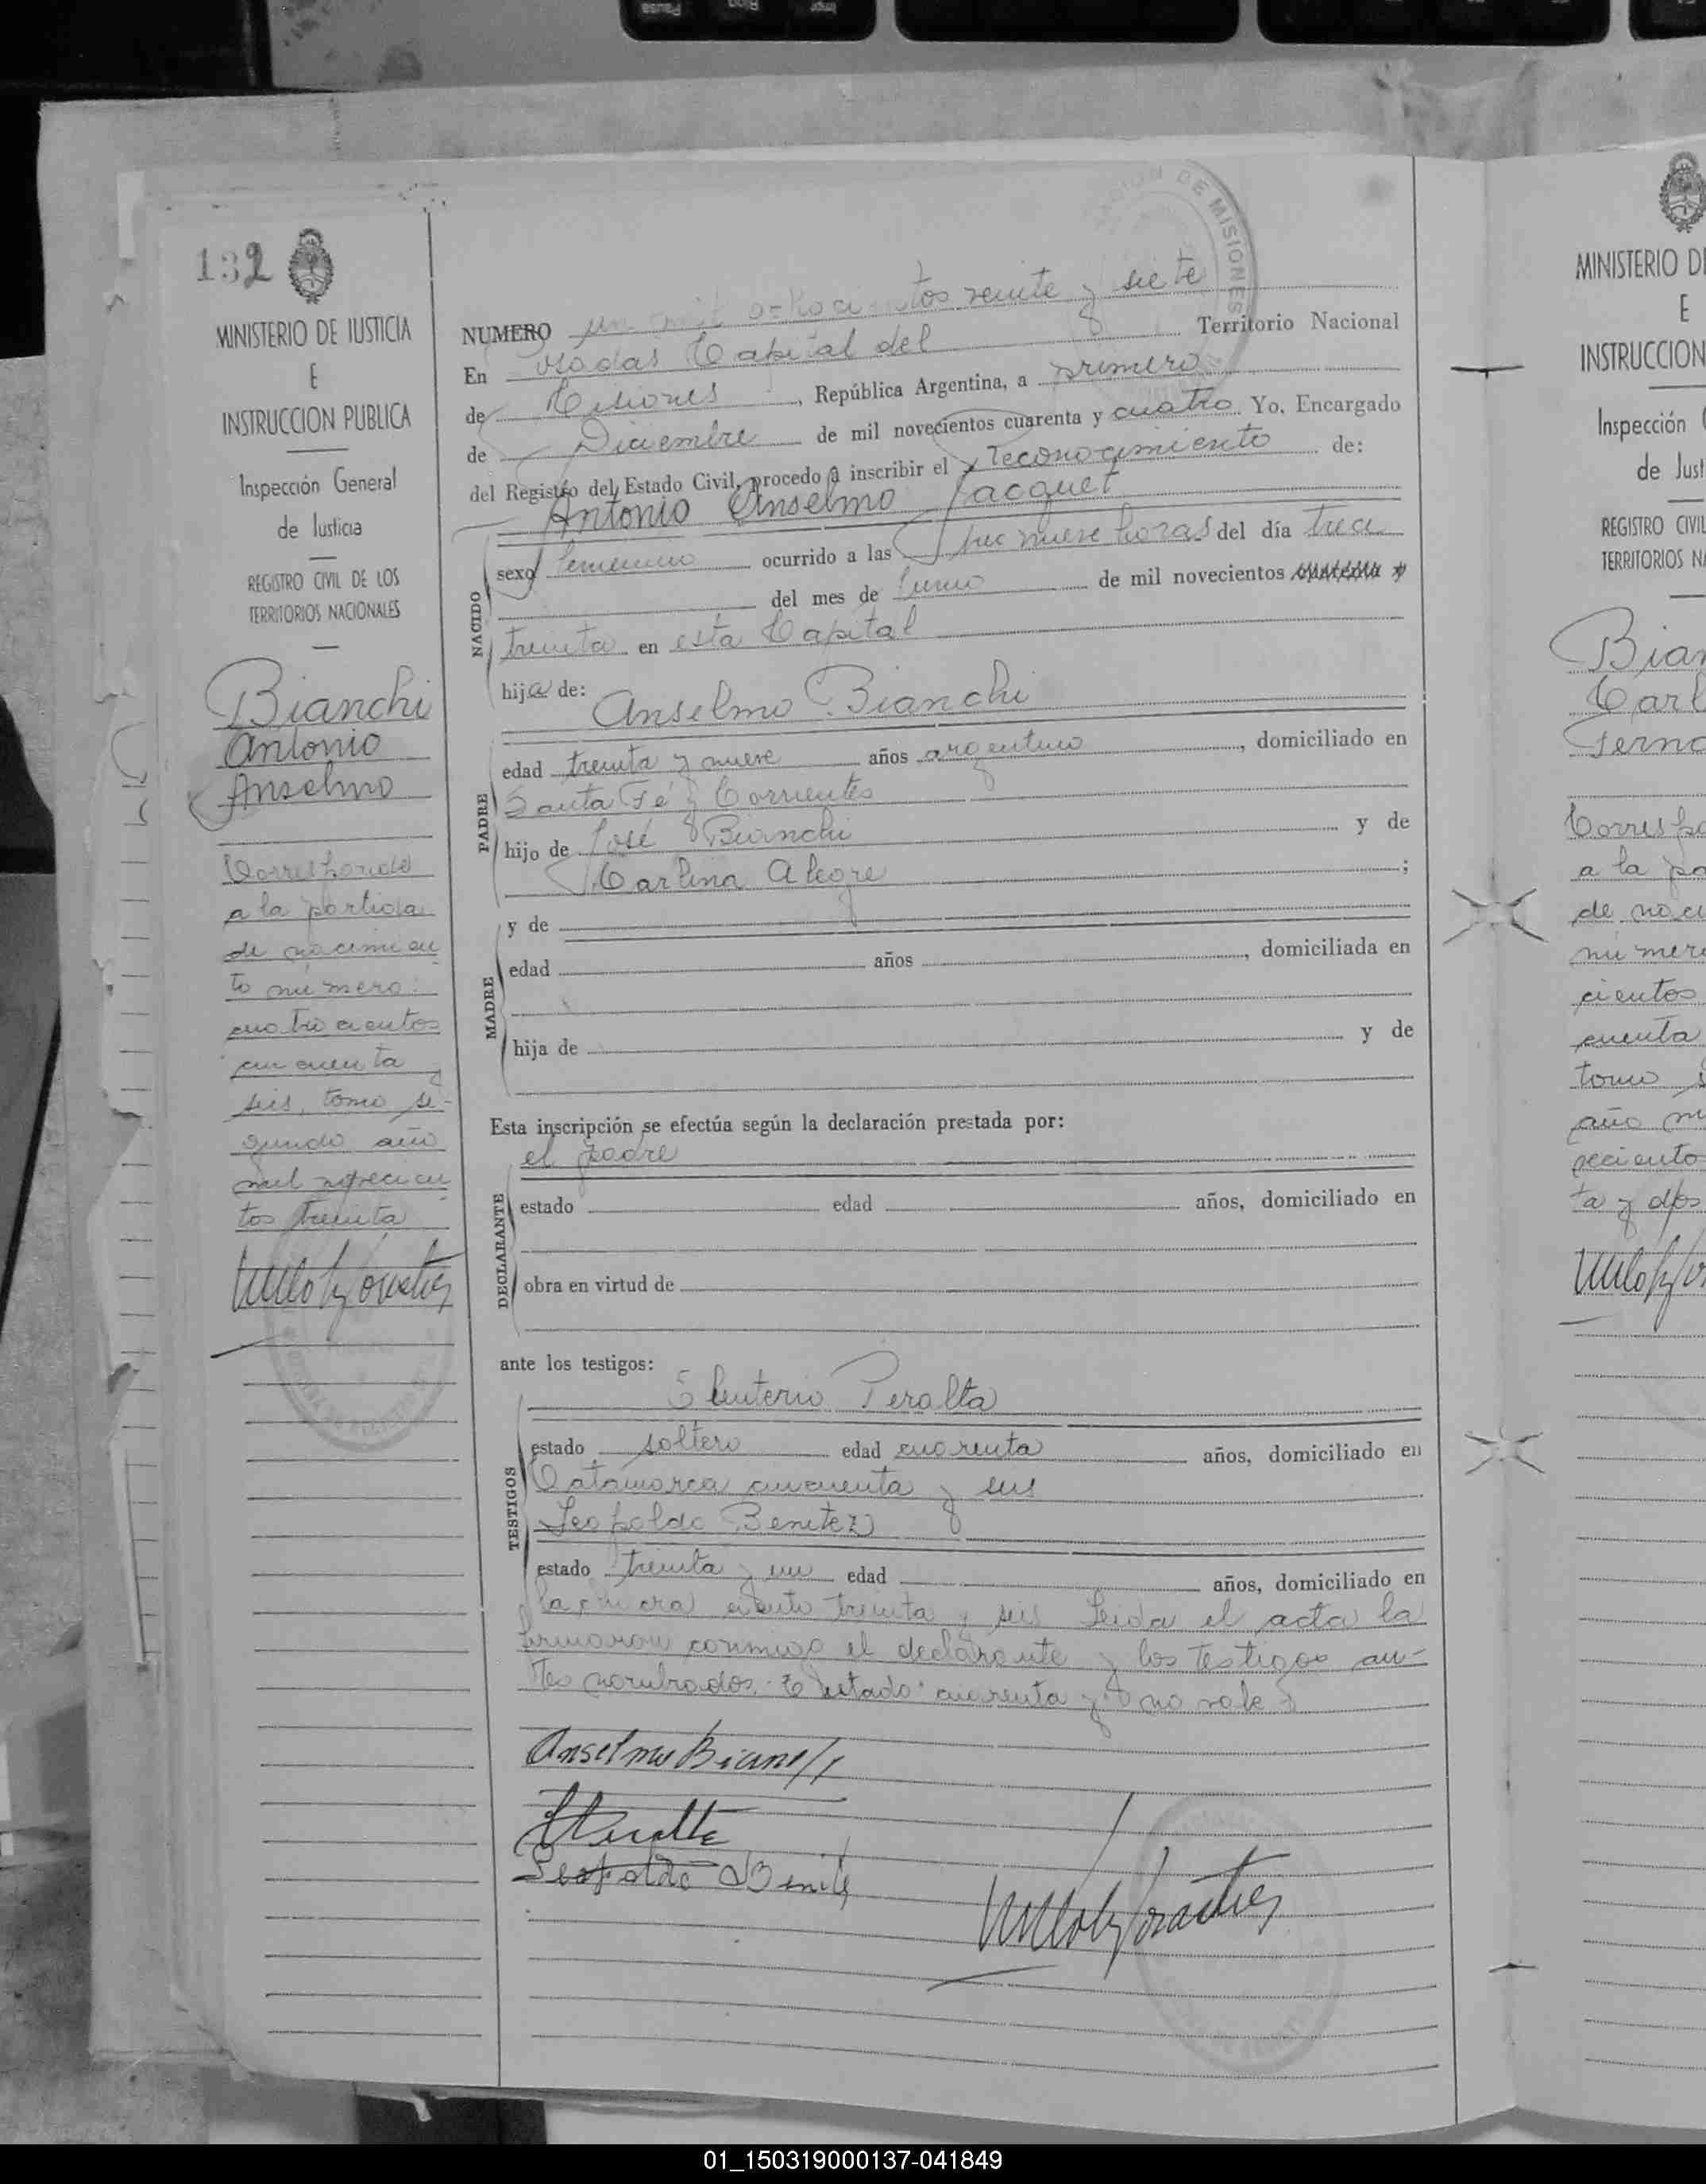 Pausa
132
MINISTERIO DE JUSTICIA
E
INSTRUCCION PUBLICA
Inspección General
de Justicia
REGISTRO CIVIL DE LOS
TERRITORIOS NACIONALES
Bianchi
Antonio
Anselmo
Corresponde
a la partida
de nacimien
to número:
cuatrocientos
cincuenta y
seis, tomo se-
gundo año
mil novecien
tos treinta
DE MISIONES
NUMERO un mil ochocientos veinte y siete
En Posadas Capital del Territorio Nacional
de Misiones, República Argentina, a primero
de Diciembre de mil novecientos cuarenta y cuatro Yo, Encargado
del Registro del Estado Civil, procedo a inscribir el reconocimiento de:
Antonio Anselmo Jacquet
NACIDO
sexo femenino ocurrido a las nueve horas del día trece
del mes de Junio de mil novecientos cuarenta y
treinta en esta Capital
hija de: Anselmo Bianchi
PADRE
edad treinta y nueve años argentino, domiciliado en
Santa Fé y Corrientes
hijo de José Bianchi y de
Carlina Alegre;
y de
MADRE
edad años, domiciliada en
hija de y de
Esta inscripción se efectúa según la declaración prestada por:
el padre
DECLARANTE
estado edad años, domiciliado en
obra en virtud de
ante los testigos:
Eleuterio Peralta
TESTIGOS
estado soltero edad cuarenta años, domiciliado en
Catamarca cincuenta y seis
Leopoldo Benitez
estado treinta y un edad años, domiciliado en
la chacra ciento treinta y seis Leida el acta la
firmaron conmigo el declarante y los testigos an-
tes nombrados. cuarenta y no vale
Anselmo Bianchi
EPeralta
Leopoldo Benitez
MINISTERIO DE
E
INSTRUCCION
Inspección
de Just
REGISTRO CIVIL
TERRITORIOS NA
Bian
Carl
Ferna
Corresp
a la pa
de naci
númer
cientos
cuenta
tomo s
año m
vecientos
ta y dos
01_150319000137-041849